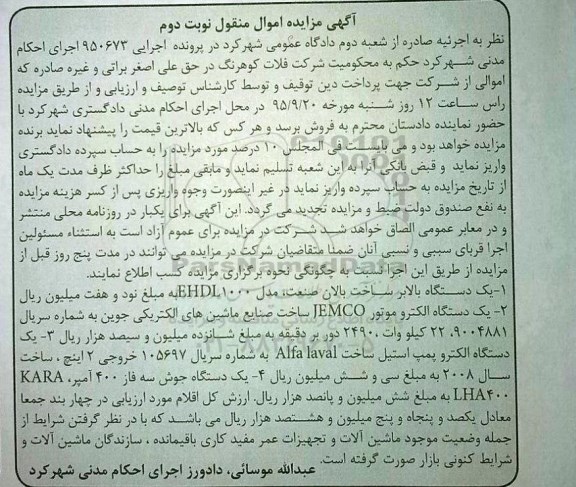 آگهی مزایده اموال منقول نوبت دوم
نظر به اجرئیه صادره از شعبه دوم دادگاه عمومی شهرکرد در پرونده اجرایی ۹۵۰۶۷۳ اجرای احکام
مدنی شهرکرد حکم به محکومیت شرکت فلات کوهرنگ در حق علی اصغر براتی و غیره صادره که
اموالی از شرکت جهت پرداخت دین توقیف و توسط کارشناس توصیف و ارزیابی و از طریق مزایده
راس ساعت ۱۲ روز شنبه مورخه ۹۵/۹/۲۰ در محل اجرای احکام مدنی دادگستری شهرکرد با
حضور نماینده دادستان محترم به فروش برسد و هر کس که بالاترین قیمت را پیشنهاد نماید برنده
مزایده خواهد بود و می بایست فی المجلس ۱۰ درصد مورد مزایده را به حساب سپرده دادگستری
واریز نماید و قبض بانکی آنرا به این شعبه تسلیم نماید و مابقی مبلغ را حداکثر ظرف مدت یک ماه
از تاریخ مزایده به حساب سپرده واریز نماید در غیر اینصورت وجوه واریزی پس از کسر هزینه مزایده
به نفع صندوق دولت ضبط و مزایده تجدید می گردد. این آگهی برای یکبار در روزنامه محلی منتشر
و در معابر عمومی الصاق خواهد شد شرکت در مزایده برای عموم آزاد است به استثناء مسئولین
اجرا قربای سببی و نسبی آنان ضمنا متقاضیان شرکت در مزایده می توانند در مدت پنج روز قبل از
مزایده از طریق این اجرا نسبت به چگونگی نحوه برگزاری مزایده کسب اطلاع نمایند.
۱-یک دستگاه بالابر ساخت بالان صنعت، مدل EHDL۱۰۰۰به مبلغ نود و هفت میلیون ریال
۲- یک دستگاه الکترو موتور JEMCO ساخت صنایع ماشین های الکتریکی جوین به شماره سریال
۹۰۰۴۸۸۱، ۲۲ کیلو وات ،۲۴۹۰ دور بر دقیقه به مبلغ شانزده میلیون و سیصد هزار ریال ۳- یک
دستگاه الکترو پمپ استیل ساخت Alfa laval به شماره سریال ۱۰۵۶۹۷ خروجی ۲ اینچ ، ساخت
سال ۲۰۰۸ به مبلغ سی و شش میلیون ریال ۴- یک دستگاه جوش سه فاز ۴۰۰ آمپر، KARA
LHA۴۰۰ به مبلغ شش میلیون و پانصد هزار ریال. ارزش کل اقلام مورد ارزیابی در چهار بند جمعا
معادل یکصد و پنجاه و پنج میلیون و هشتصد هزار ریال می باشد که با در نظر گرفتن شرایط از
جمله وضعیت موجود ماشین آلات و تجهیزات عمر مفید کاری باقیمانده ، سازندگان ماشین آلات و
شرایط کنونی بازار صورت گرفته است.
عبدالله موسائی، دادورز اجرای احکام مدنی شهرکرد